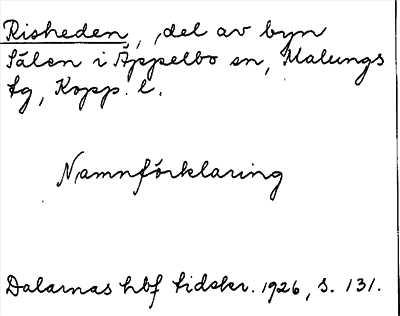 Risheden, del av byn
Sälen i Äppelbo sn, Malungs
tg, Kopp. l.
Namnförklaring
Dalarnas hbf tidskr. 1926, s. 131.